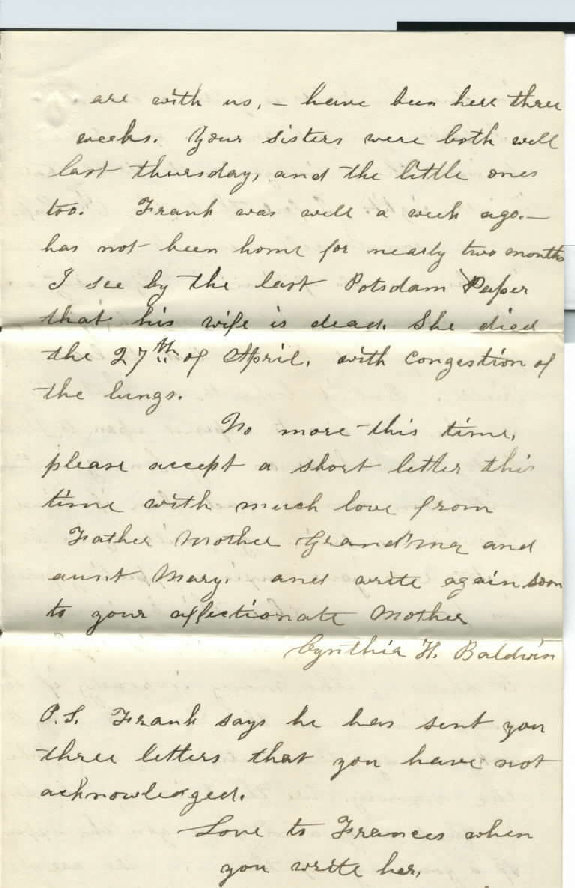 are with us, - have been here three
weeks. Your sisters were both well
last thursday, and the little ones
too. Frank was well a week ago. -
has not been home for nearly two months
I see by the last Potsdam Paper
that his wife is dead. She died
the 27th of April, with congestion of
the lungs.
No more this time,
please accept a short letter this
time with much love from
Father Mother Grand'ma and
aunt Mary. and write again soon
to your affectionate Mother
Cynthia H. Baldwin
P.S. Frank says he has sent you
three letters that you have not
acknowledged.
Love to Frances when
you write her.